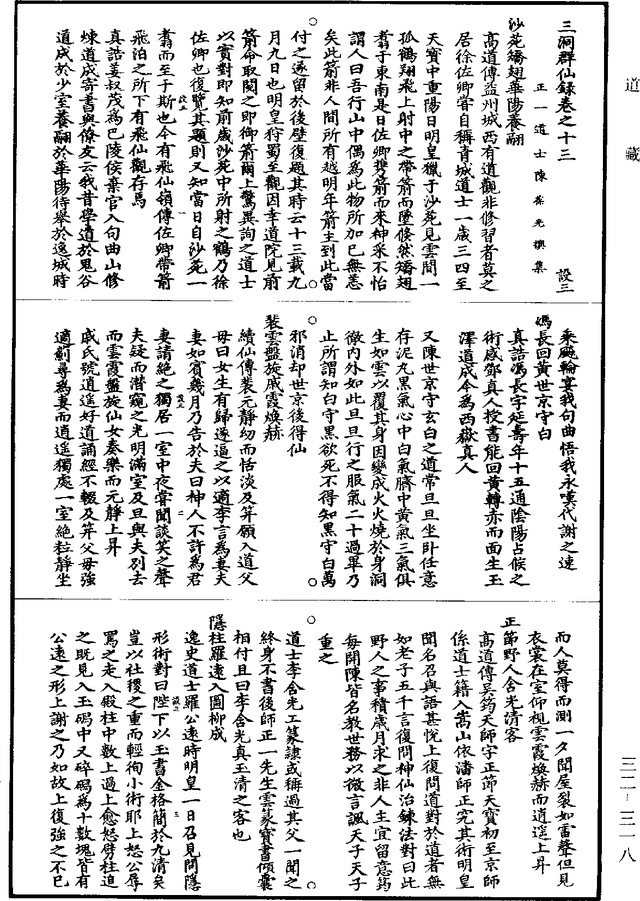 道藏
三洞群仙錄卷之十三
設三
正一道士陳葆光撰集
沙苑矯翅華陽養翮
高道傳益州城西有道觀非修習者莫之
居徐佐卿嘗自稱青城道士一歲三四至
天寶中重陽日明皇獵于沙苑見雲間一
孤鶴翔飛上射中之帶箭而墜倏然矯翅
翥于東南是日佐卿携箭而來神采不怡
謂人曰吾行山中偶為此物所加已無恙
矣此箭非人間所有越明年箭主到此當
付之遂留於後壁復題其時云十三載九
月九日也明皇狩蜀至觀因幸道院見前
箭命取閱之即御箭爾上驚異詢之道士
以實對即知前歲沙苑中所射之鶴乃徐
佐卿也復覽其題則又知當日自沙苑一
翥而至于斯也今有飛仙嶺傳佐卿帶箭
飛泊之所下有飛仙觀存焉
真誥姜叔茂為巴陵侯棄官入句曲山修
煉道成寄書與僚友云我昔學道於鬼谷
道成於少室養翮於華陽待舉於逸城時
乘飈輪宴我句曲悟我永嘆代謝之速
馮長回黃世京守白
真誥馮長字延壽年十五通陰陽占候之
術感鄧真人授書能回黃轉赤而面生玉
澤道成今為西嶽真人
又陳世京守玄白之道常旦旦坐卧任意
存泥丸黑氣心中白氣臍中黃氣三氣俱
生如雲以覆其身因變成火火燒於身洞
徹內外如此旦旦行之服氣二十過畢乃
止所謂知白守黑欲死不得知黑守白萬
邪消却世京後得仙
裴雲盤旋戚霞煥赫
續仙傳裴元靜幼而恬淡及笄願入道父
母曰女生有歸遂逼之以適李言為妻夫
妻如賓幾月乃告於夫曰神人不許為君
妻請絕之獨居一室中夜嘗聞談笑之聲
夫疑而潛窺之光明滿室及旦與夫別去
而雲霞盤旋仙女奏樂而元靜上昇
戚氏號逍遥好道誦經不輟及笄父母強
適薊尋為妻而逍遥獨處一室絕粒靜坐
而人莫得而測一夕聞屋裂如雷聲但見
衣裳在室仰視雲霞煥赫而逍遥上昇
正節野人含光清客
高道傳吳筠天師字正節天寶初至京師
係道士籍入嵩山依潘師正究其術明皇
聞名召與語甚悅上復問道對於道者無
如老子五千言復問神仙治鍊法對曰此
野人之事積歲月求之非人主宜留意筠
每開陳皆名教世務以微言諷天子天子
重之
道士李含光工篆隸或稱過其父一聞之
終身不書後師正一先生雲篆寶書傾囊
相付且曰李含光真玉清之客也
隱柱羅遠入園柳成
逸史道士羅公遠時明皇一日召見問隱
形術對曰陛下以玉書金格簡於九清矣
豈以社稷之重而輕徇小術耶上怒公辱
罵之走入殿柱中數上過上愈怒劈柱追
之既見入玉碼中又碎碼為十數塊皆有
公遠之形上謝之乃如故上復強之不已
三二-三一八